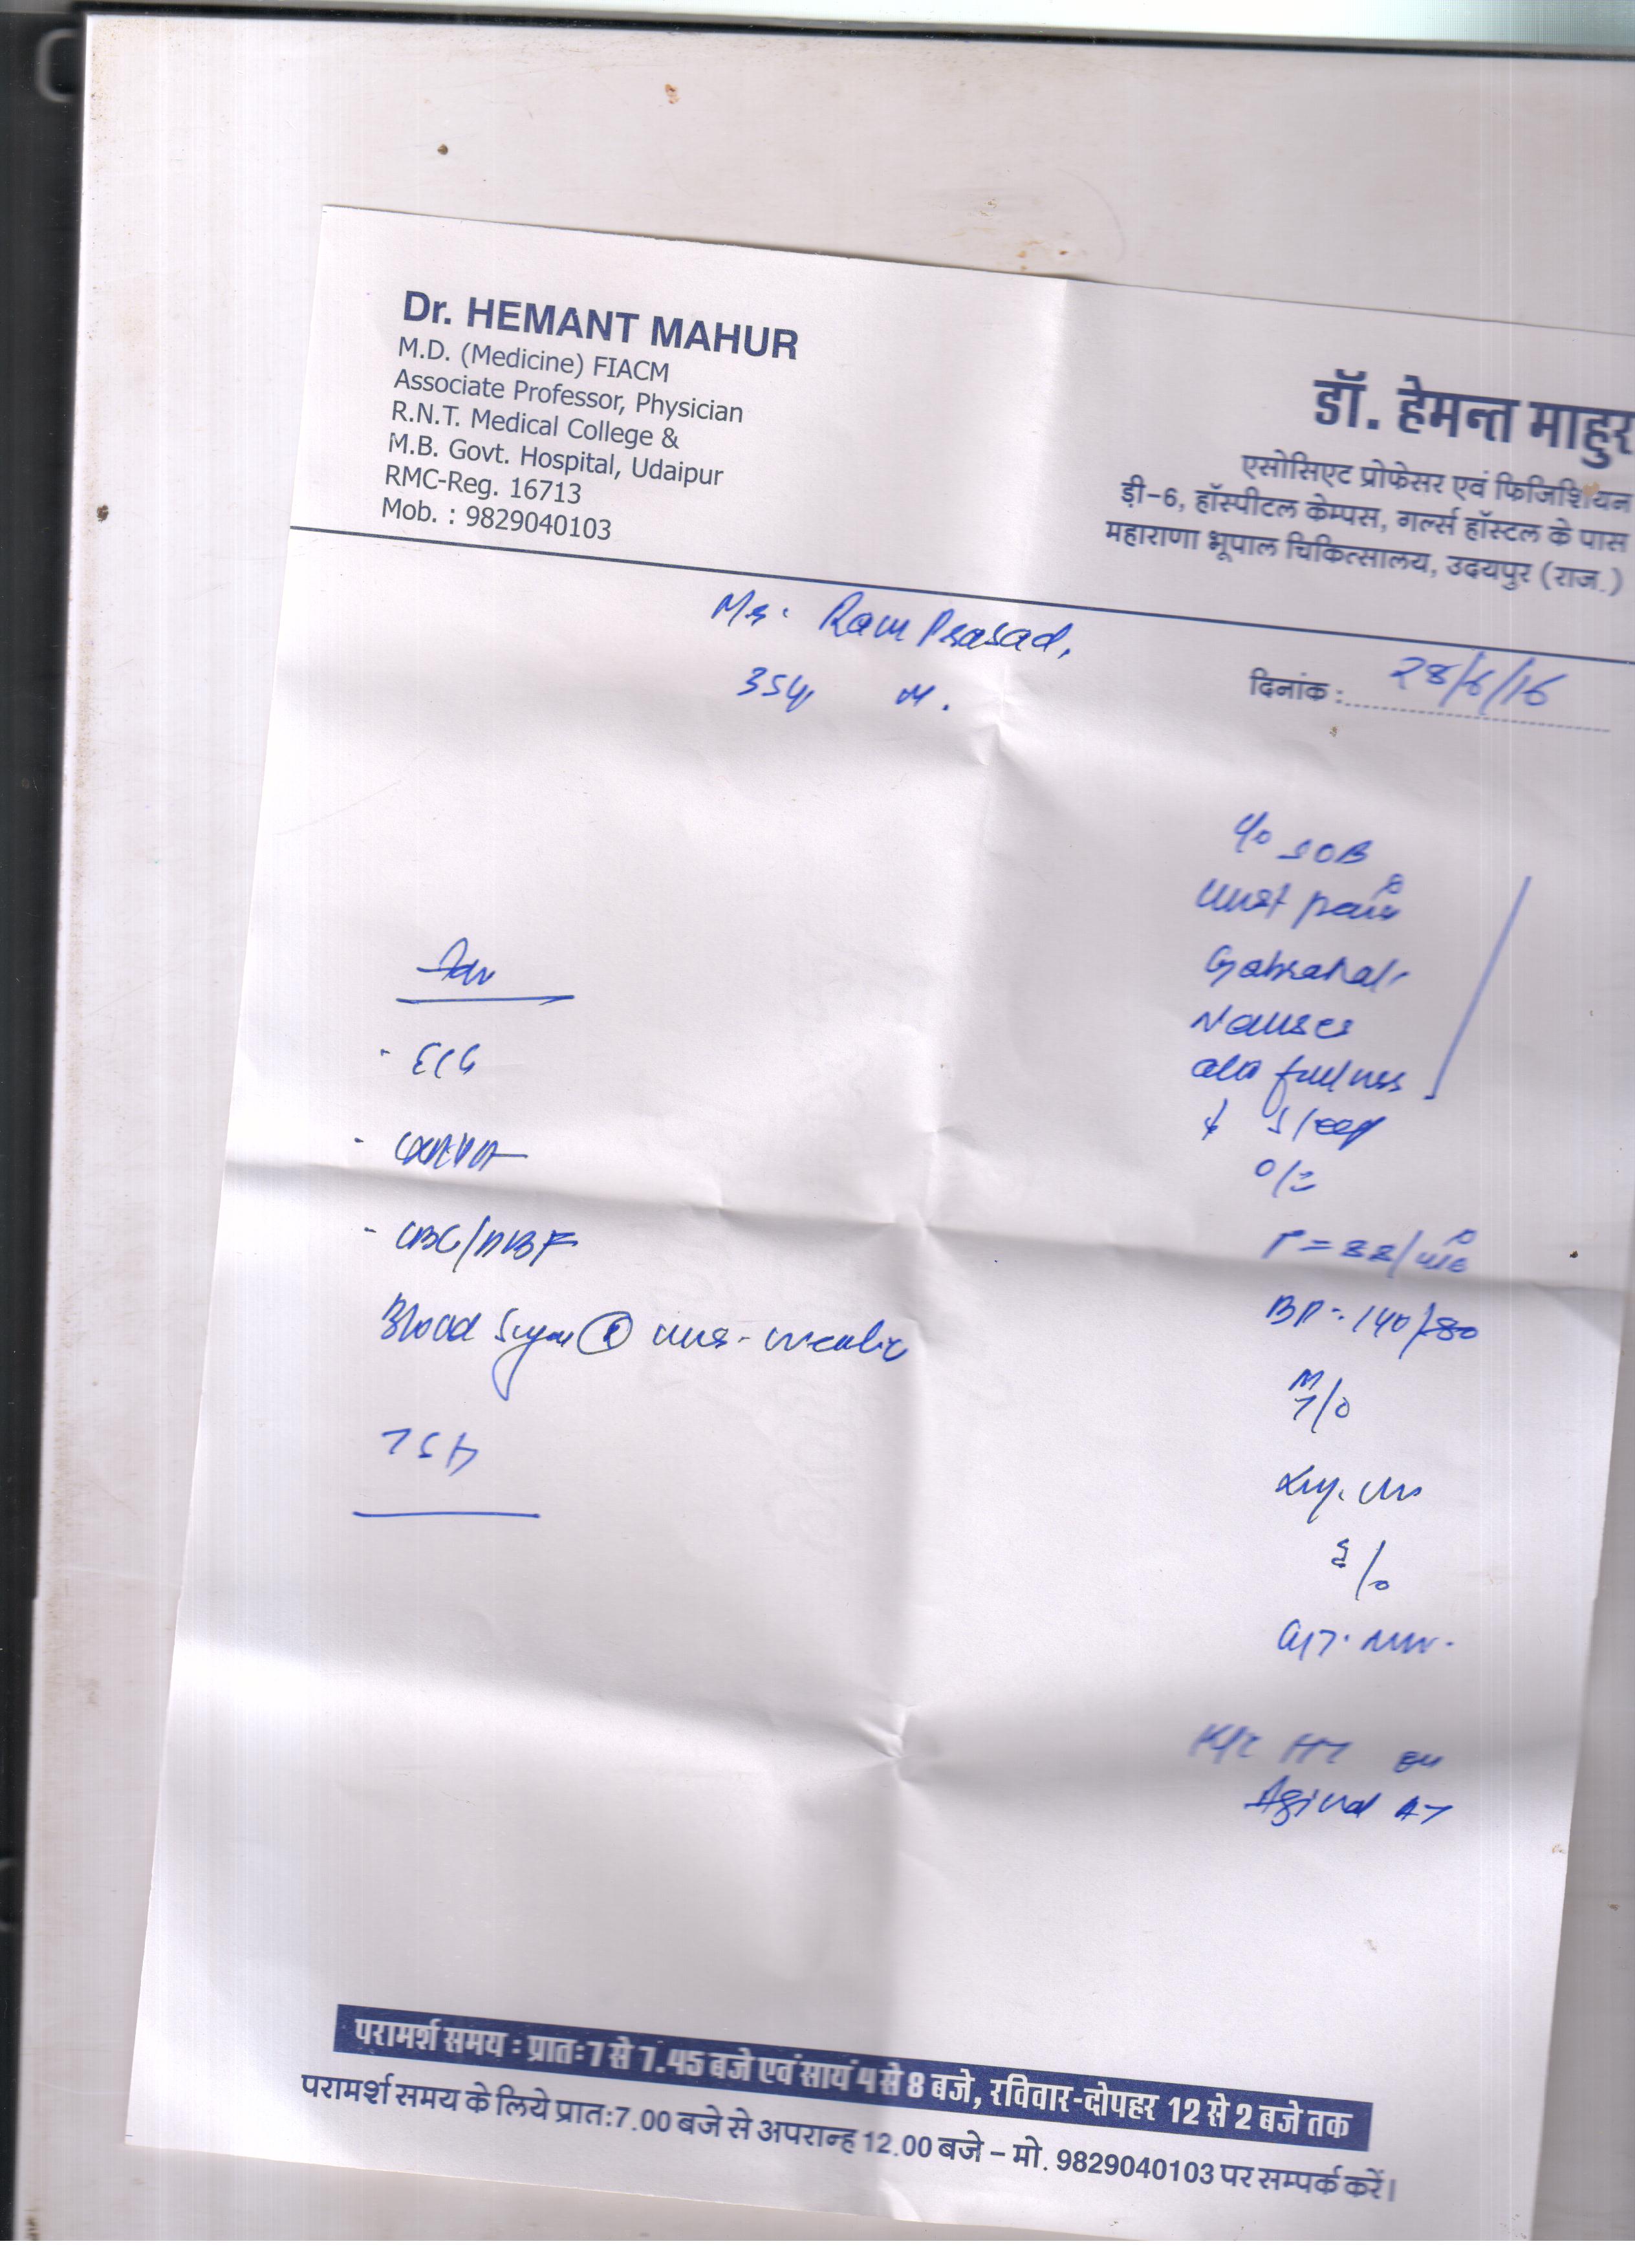 Dr. HEMANT MAHUR
M.D. (Medicine) FIACM
Associate Professor, Physician
R.N.T. Medical College &
M.B. Govt. Hospital, Udaipur
RMC-Reg. 16713
Mob. : 9829040103
डॉ. हेमन्त माहुर
एसोसिएट प्रोफेसर एवं फिजिशियन
ड़ी-6, हॉस्पीटल केम्पस, गर्ल्स हॉस्टल के पास
महाराणा भूपाल चिकित्सालय, उदयपुर (राज.)
Mr. Ram Prasad,
35y M.
दिनांक : 28/6/16
c/o SOB
chest pain
Gabrahat
Nausea
abd fullness
↓ Sleep
o/e
P = 88/min
BP = 140/80
S/o
K/c HT on
AT
Adv
- ECG
- CXR PA
- CBC/PBF
Blood Sugar
TSH
परामर्श समय : प्रातः 7 से 7.45 बजे एवं सायं 4 से 8 बजे, रविवार-दोपहर 12 से 2 बजे तक
परामर्श समय के लिये प्रात:7.00 बजे से अपरान्ह 12.00 बजे – मो. 9829040103 पर सम्पर्क करें।